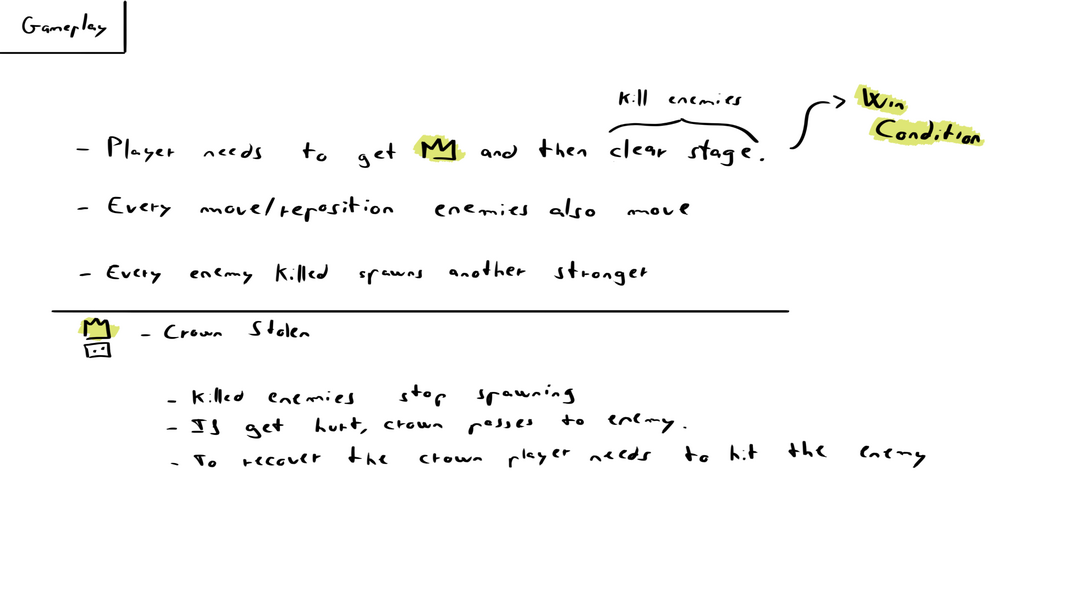 Gameplay
Kill enemies
Win
Condition
- Player needs to get and then clear stage.
- Every move/reposition enemies also move
- Every enemy killed spawns another stronger
- Crown Stolen
- Killed enemies stop spawning
- If get hurt, crown passes to enemy.
- To recover the crown player needs to hit the enemy